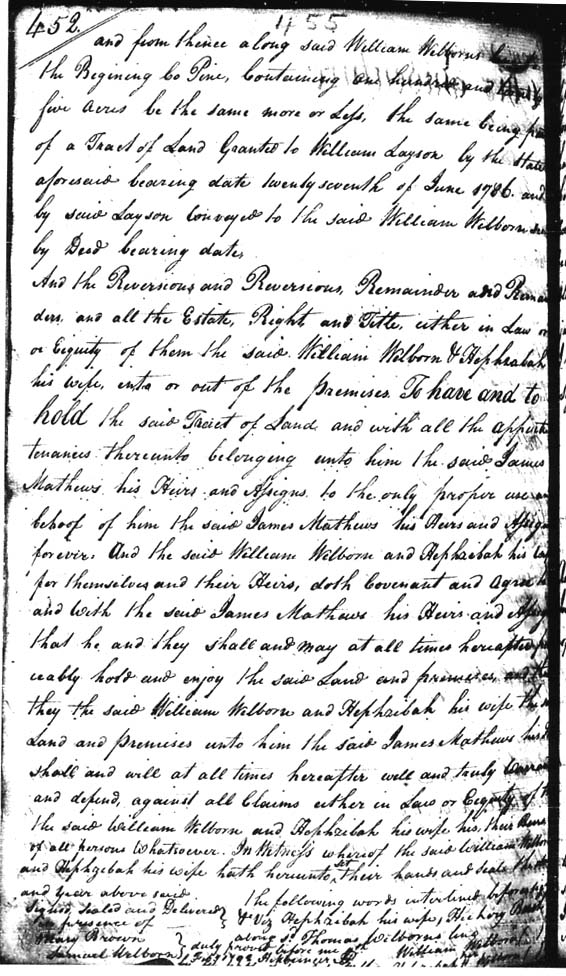 452. 455
and from thence along said William Wilborns line to
the Begining to Pine, Containing one hundred and
five Acres be the same more or Less, the same being
of a Tract of Land Granted to William Layson by the State
aforesaid bearing date twenty seventh of June 1786. and
by said Layson Convayed to the said William Wilborn
by Deed bearing date,
And the Reversions and Reversions, Remainder and Remain
ders, and all the Estate, Right, and Title, either in Law or
or Eequity of them the said William Wilborn & Hephzabah
his wife, into or out of the premises. To have and to
hold the said Tract of Land and with all the appurte
tenances thereunto belonging unto him the said James
Mathews his Heirs and Assigns to the only proper use an
behoof of him the said James Mathews his Heirs and Assigns
forever. And the said William Wilborn and Hephzibah his
for themselves and their Heirs, doth Covenant and agree
and with the said James Mathews his Heirs and Assigns
that he and they shall and may at all times hereafter pe
iceably hold and enjoy the said Land and premises, and
they the said William Wilborn and Hephzibah his wife the
Land and premises unto him the said James Mathews his
shall and will at all times hereafter well and truly Warra
and defend, against all Claims either in Law or Eequity of
the said William Wilborn and Hephzibah his wife his, their Heirs
of all persons Whatsoever. In Witness whereof the said William Wilborn
and Hephzebah his wife hath hereunto set their hands and seals the
and year above said
the following words interlined before
Signed, sealed and Delivered & Viz Hephzibah his wife, Hickory
in presence of along sd. Thomas Wilborns line
Mary Brown duly proved before me William Wilborn
Samuel Wilborn